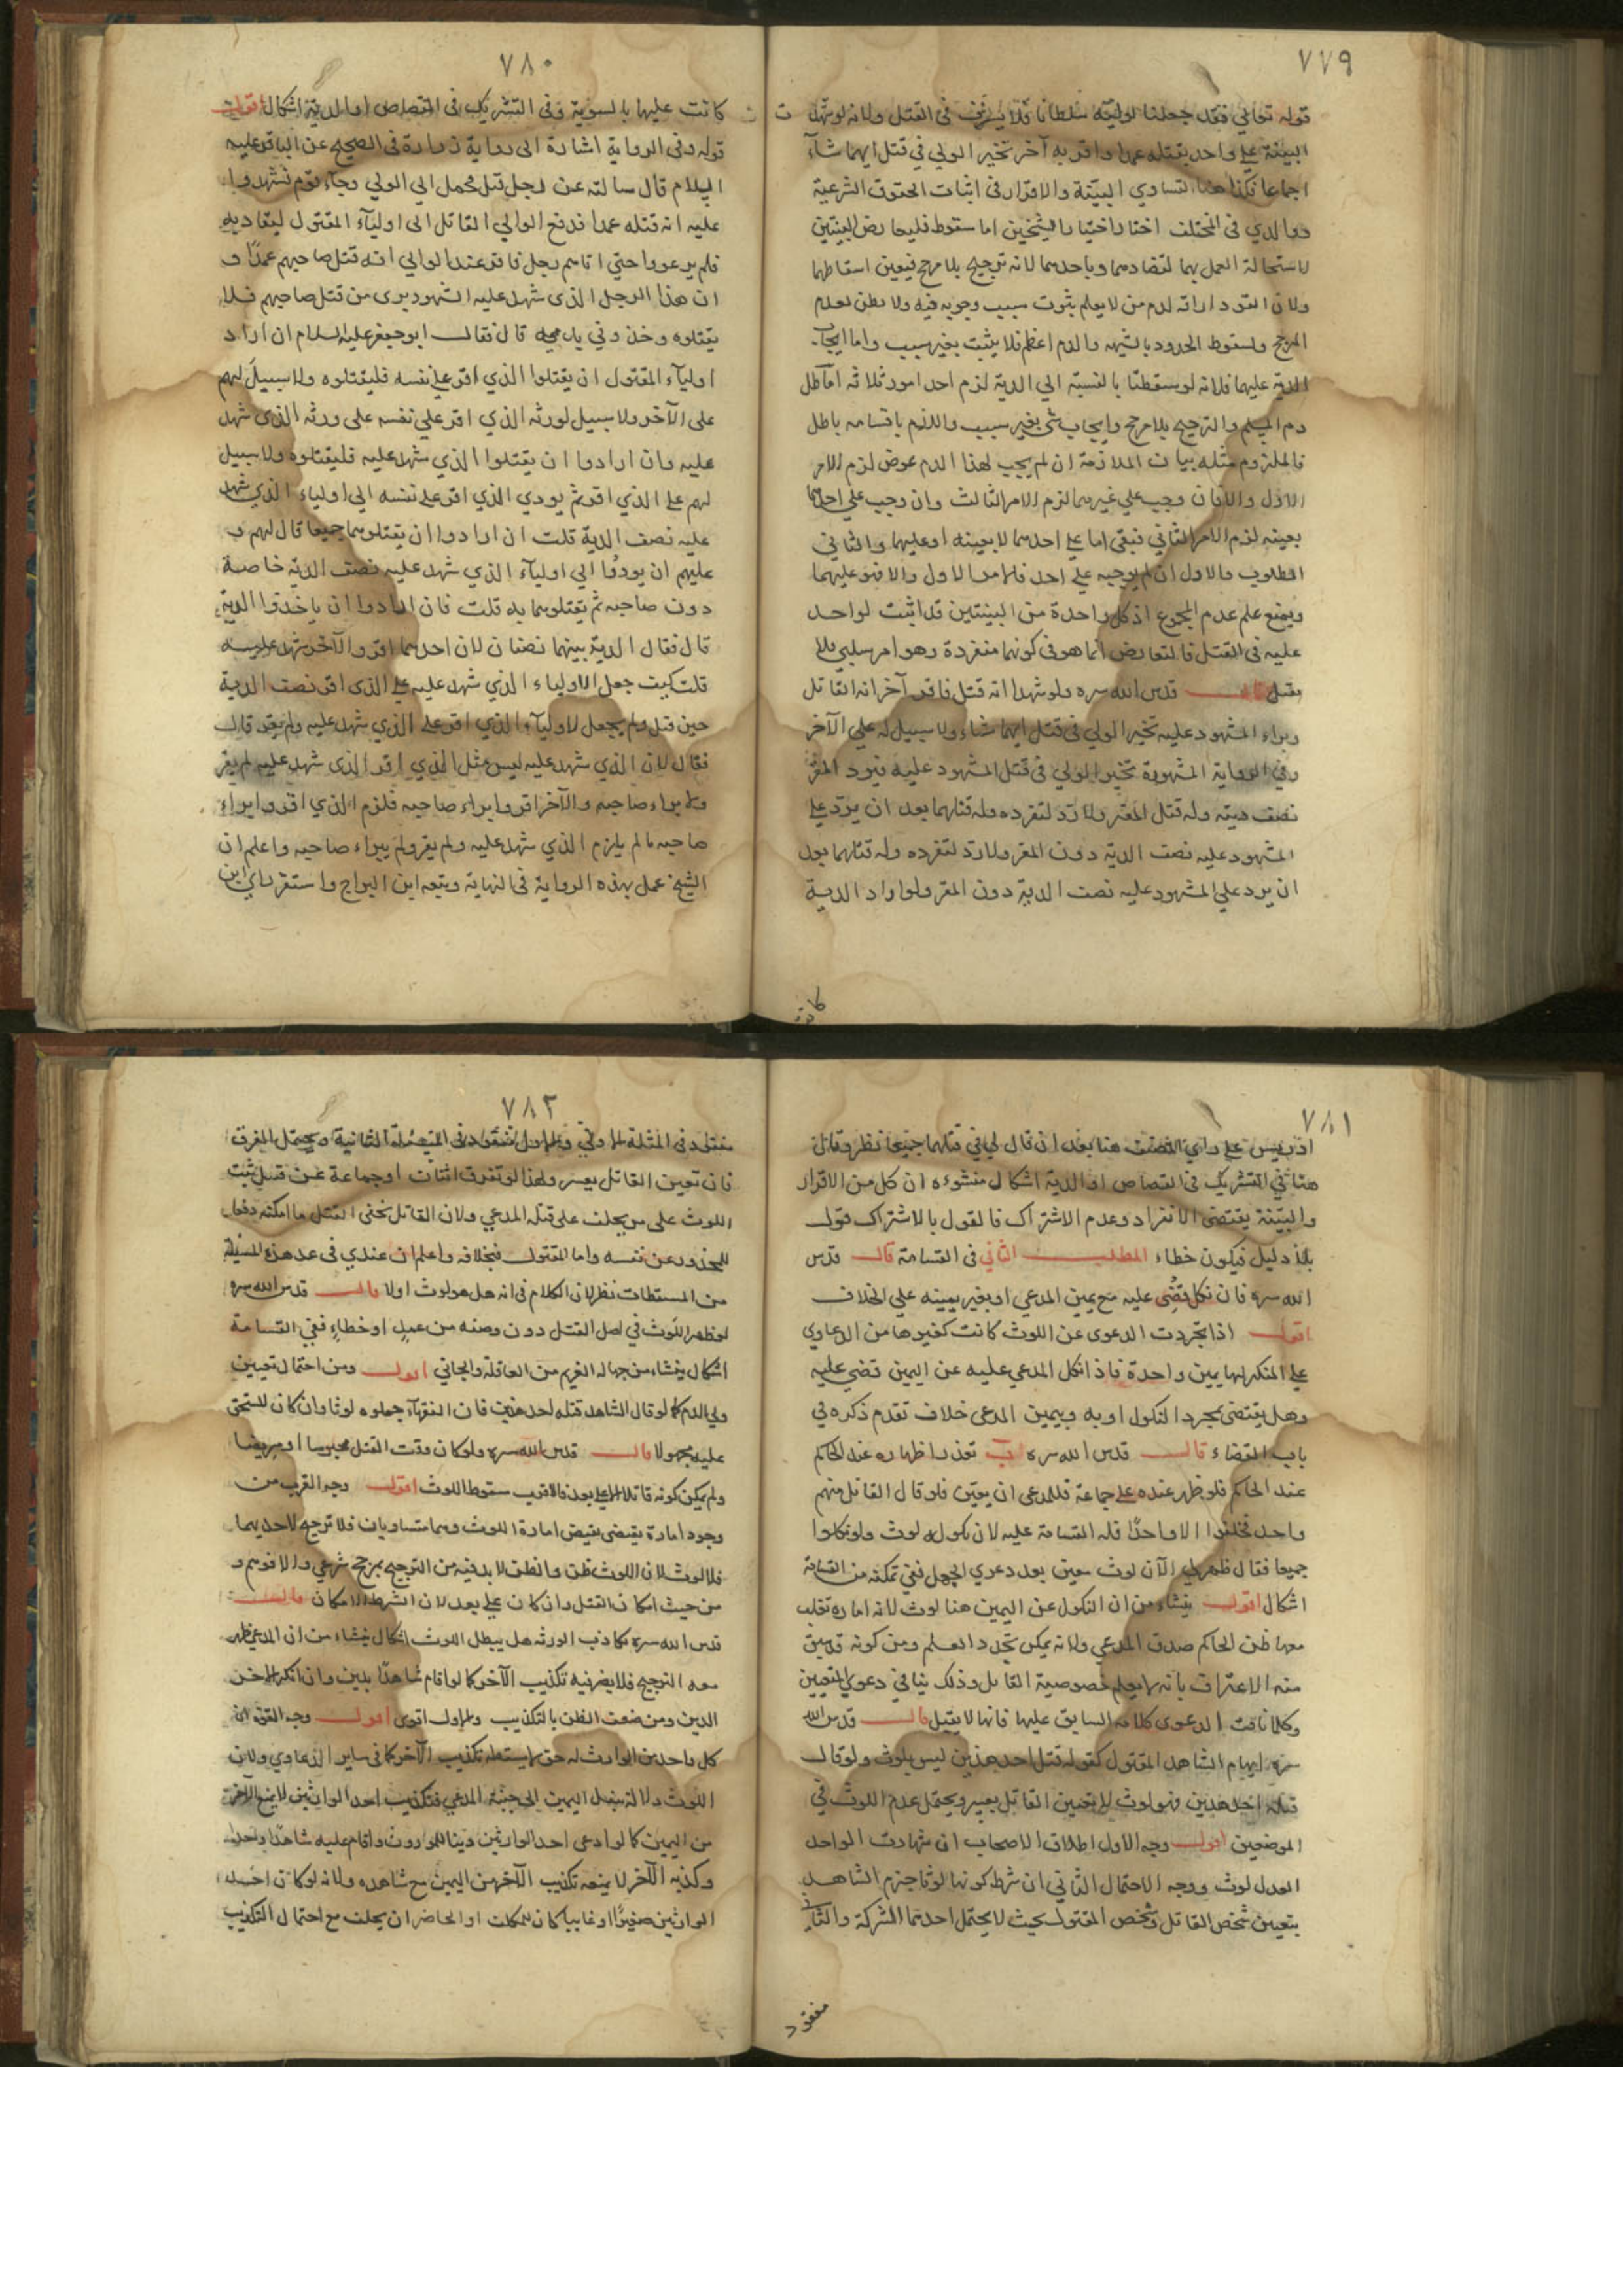 ٧٧٩
قوله تعالي فقد جعلنا لوليه سلطانا فلا يسرف فى القتل ولانه لو شهد ت
البينة على واحد بقتله عمدا واقر به آخر تخير الولي في قتل ايهما شاء
اجماعا فكذا هنا لتساوي البينة والاقرار فى اثبات الحقوق الشرعية
ووالدي فى المختلف اختار اختيار الشيخين اما سقوط فلتعارض البينتين
لاستحالة العمل بهما لتضادهما وباحدهما لانه ترجيح بلا مرجح فيعين اسقاطهما
ولان القود اراقه لدم من لا يعلم بثوت سبب وجوبه فيه ولا يظن لعدم
المرجح ولسقوط الحدود بالشبهه والدم اعظم فلا يثبت بغير سبب واما ايجاب
الدية عليهما فلانه لو سقطتا بالنسبة الي الدية لزم احد امور ثلاثه اما طل
دم المسلم والترجيح بلا مرجح وايجاب شئ بغير سبب واللازم باقسامه باطل
فالملزوم مثله بيان الملازمة ان لم يجب لهذا الدم عوض لزم الامر
الاول والا فان وجب علي غيرهما لزم الامر الثالث وان وجب علي احدهما
بعينه لزم الامر الثاني فبقى اما على احدهما لا بعينه او عليهما والثاني
المطلوب والاول ان لم يوجبه على احد فلامر الاول والا فهو عليهما
ويمنع علم عدم المجموع اذ كل واحدة من البينتين قد اثبت لواحد
عليه فى القتل فالتعارض انما هو فى كونها منفردة وهو امر سلبي فلا
يقبل قال قدس الله سره ولو شهدا انه قتل فاقر آخر انه القاتل
وبراء المشهود عليه تخير الولي فى قتل ايهما شاء ولا سبيل له علي الآخر
وفى الرواية المشهورة تخير الولي فى قتل المشهود عليه فيرد المقر
نصف ديته وله قتل المقر ولا رد لتفرده وله قتلهما بعد ان يرد على
المشهود عليه نصف الدية دون المقر ولا رد لتفرده وله قتلهما بعد
ان يرد علي المشهود عليه نصف الدية دون المقر ولو اراد الدية
كانت
٧٨٠
كانت عليهما بالسوية وفى التشريك فى القصاص او الدية اشكال اقول
قوله وفى الرواية اشارة الى رواية زرارة فى الصحيح عن الباقر عليه
السلام قال سالته عن رجل قتل فحمل الي الوالي وجاء قوم فشهدوا
عليه انه قتله عمدا فدفع الوالي القاتل الى اولياء المقتول ليقاد به
فلم يرعووا حتي اتاهم رجل فاقر عند الوالي انه قتل صاحبهم عمدا و
ان هذا الرجل الذى شهد عليه الشهود برى من قتل صاحبهم فلا
يقتلوه وخذوني بدمه قال فقال ابو جعفر عليه السلام ان اراد
اولياء المقتول ان يقتلوا الذي اقر على نفسه فليقتلوه ولا سبيل لهم
على الآخر ولا سبيل لورثه الذي اقر علي نفسه على ورثه الذى شهد
عليه وان ارادوا ان يقتلوا الذي شهد عليه فليقتلوه ولا سبيل
لهم على الذي اقر ثم يودي الذي اقر على نفسه الى اولياء الذي شهد
عليه نصف الدية قلت ان ارادوا ان يقتلوهما جميعا قال لهم و
عليهم ان يودوا الي اولياء الذي شهد عليه نصف الدية خاصة
دون صاحبه ثم يقتلوهما به قلت فان ارادوا ان ياخذوا الدية
قال فقال الدية بينهما نصفان لان احدهما اقر والآخر شهد عليه
قلت كيف جعل الاولياء الذي شهد عليه على الذى اقر نصف الدية
حين قتل ولم يجعل لاولياء الذي اقر على الذي شهد عليه ولم يقر قال
فقال لان الذي شهد عليه ليس مثل الذي اقر الذى شهد عليه لم يقر
ولا براء صاحبه والآخر اقر وابراء صاحبه فلزم الذي اقر وابراء
صاحبه ما لم يلزم الذي شهد عليه ولم يقر ولم يبراء صاحبه واعلم ان
الشيخ عمل بهذه الرواية فى النهاية وتبعه ابن البراج واستقر راي ابن
٧٨١
ادريس على راي المصنف هنا بعد ان قال لي في قتلهما جميعا نظر وقال
هنا فى التشريك فى القصاص او الدية اشكال منشوءه ان كل من الاقرار
والبينة يقتضى الانفراد وعدم الاشتراك فالقول بالاشتراك قول
بلا دليل فيكون خطاء المطلب الثاني فى القسامة قال قدس
الله سره فان نكل قضى عليه مع يمين المدعي او بغير يمينه علي الخلاف
اقول اذا تجردت الدعوى عن اللوث كانت كغيرها من الدعاوي
على المنكر لها يمين واحدة فاذا نكل المدعي عليه عن اليمين قضي عليه
وهل يقتضى بمجرد النكول او به وبيمين المدعى خلاف تقدم ذكره في
باب القضاء قال قدس الله سره ب تعذر اظهاره عند الحاكم
عند الحاكم فلو ظهر عنده على جماعة فللمدعى ان يعين فلو قال القاتل منهم
واحد فحلفوا الا واحدا فله القسامة عليه لان نكوله لوث ولو نكلوا
جميعا فقال ظهر لي الآن لوث معين بعد دعوي الجهل ففي تمكنه من القسامة
اشكال اقول ينشاء من ان النكول عن اليمين هنا لوث لانه امارة تغلب
معها ظن الحاكم صدق المدعي ولانه يمكن تجدد العلم ومن كونه قد سبق
منه الاعتراف بانه لا يعلم خصوصية القاتل وذلك ينافي دعوي التعيين
وكلما نافت الدعوى كلامه السابق عليها فانها لا يقبل قال قدس الله
سره ابهام الشاهد المقتول كقوله قتل احد هذين ليس بلوث ولو قال
قتله احد هذين فهو لوث لا تعيين القاتل بعسر ويحتمل عدم اللوث في
الموضعين اقول وجه الاول اطلاق الاصحاب ان شهادت الواحد
العدل لوث ووجه الاحتمال الثاني ان شرط كونها لوثا جزم الشاهد
بتعيين شخص القاتل وشخص المقتول بحيث لا يحتمل احدهما الشركة والثاني
مفقود
٧٨٢
مفقود فى المثلة الاولي والاول مفقود فى المسئلة الثانية ويحتمل الفرق
فان تعيين القاتل يعسر ولهذا لو تفرق اثنان او جماعة عن قتيل ثبت
اللوث على من يحلف على قتله المدعي ولان القاتل يخفى القتل ما امكنه دفعا
للمحذور عن نفسه واما المقتول فبخلافه واعلم ان عندي فى عد هذه المسئلة
من المسقطات نظر لان الكلام فى انه هل هو لوث اولا قال قدس الله سره
لو ظهر اللوث في اصل القتل دون وصفه من عمد او خطاء ففي القسامة
اشكال ينشاء من جهالة الغريم من العاقلة والجاني اقول ومن احتمال تعيين
ولي الدم كما لو قال الشاهد قتله احد هذين فان الفقهاء جعلوه لوثا وان كان المستحق
عليه مجهولا قال قدس الله سره ولو كان وقت القتل محبوسا او مريضا
ولم يمكن كونه قاتلا الا على بعد فالاقرب سقوط اللوث اقول وجه القرب من
وجود امارة يقتضى نقيض امارة اللوث وهما متساويان فلا ترجيح لاحديهما
فلا لوث لان اللوث ظن والظن لا بد فيه من الترجيح بمرجح شرعي والا فوهم و
من حيث امكان القتل وان كان على بعد لان الشرط الامكان قال
قدس الله سره تكاذب الورثه هل يبطل اللوث اشكال ينشاء من ان المدعي ظهر
معه الترجيح فلا يضر فيه تكذيب الآخر كما لو اقام شاهدا بدين وان انكر الاخر
الدين ومن ضعف الظن بالتكذيب والاول اقوى اقول وجه القوة ان
كل واحد من الوارث له حق لا يسقطه تكذيب الآخر كما فى ساير الدعاوي ولان
اللوث دلالة ينقل اليمين الى جنبة المدعي فتكذيب احد الوارثين لا يمنع الآخر
من اليمين كما لو ادعى احد الوارثين دينا للموروث واقام عليه شاهدا واحدا
وكذبه الآخر لا يمنعه تكذيب الآخر من اليمين مع شاهده ولانه لو كان احد
الوارثين صغيرا او غايبا كان للمكلف او الحاضر ان يحلف مع احتمال التكذيب